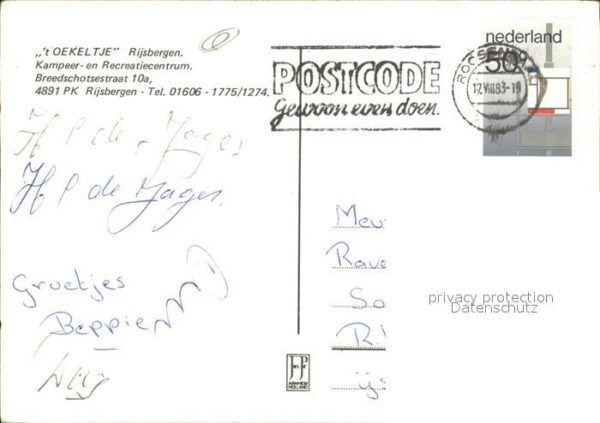 „'t OEKELTJE" Rijsbergen.
Kampeer- en Recreatiecentrum.
Breedschotsestraat 10a,
4891 PK Rijsbergen - Tel. 01606 - 1775/1274.
POSTCODE
Gewoon even doen.
nederland
50
17.VIII.83-19
H P de Jager
H P de Jager
Groetjes
Beppie
Meu
Rave
So
R.
ijs
privacy protection
Datenschutz
JosPé
ARNHEM
HOLLAND